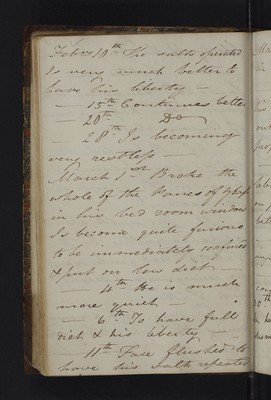 Febry 10th The salts operated
Is very much better to
have his liberty —
— 15th Continues better
— 20th Do
— 28th Is becoming
very restless —
March 1st Broke the
whole of the Panes of glass
in his bed room window
Is become quite furious
to be immediately confined
& put on low diet —
— 4th He is much
more quiet —
— 6th To have full
diet & his liberty —
11th Face flushed to
have his salts repeated